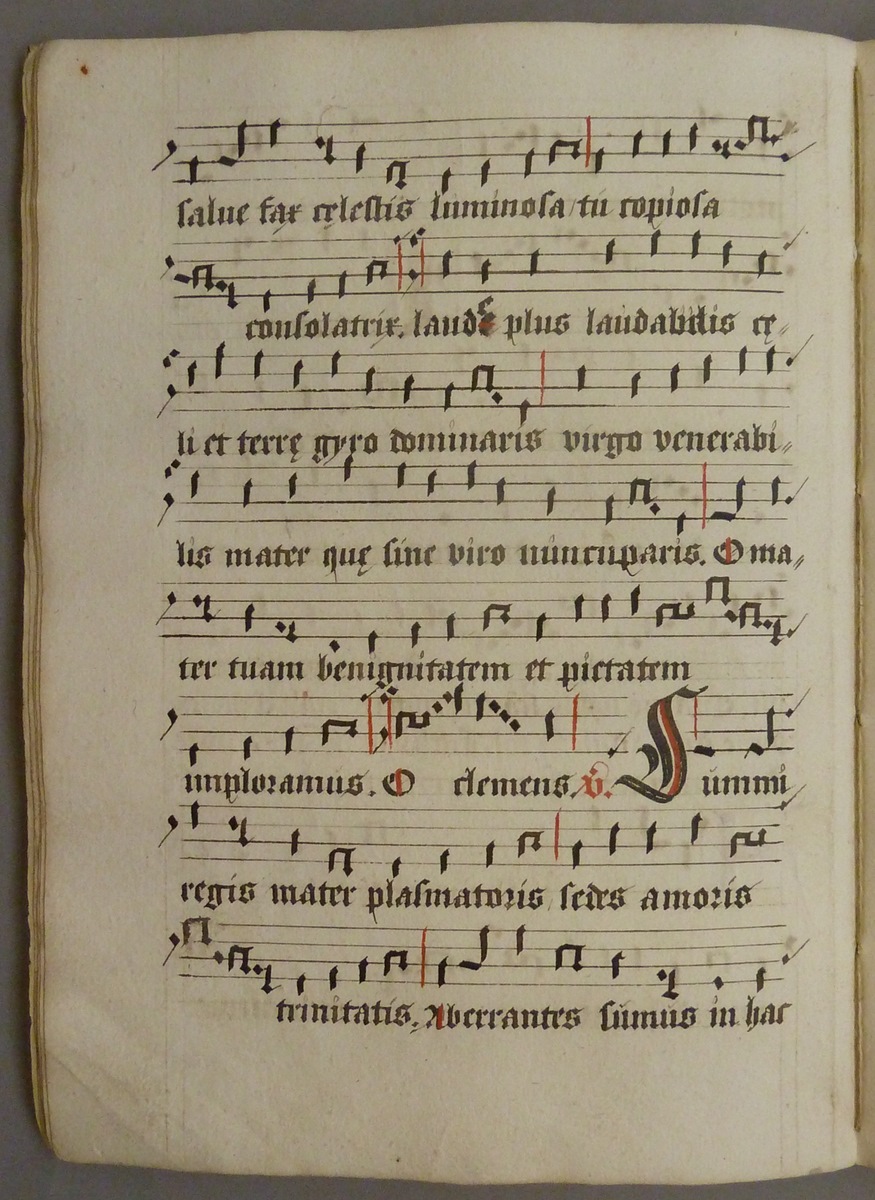 salue fax cęlestis luminosa / tu copiosa
consolatrix. laude plus laudabilis cę-
li et terrę gyro dominaris virgo venerabi-
lis mater quę sine viro nuncuparis. O ma-
ter tuam benignitatem et pietatem
imploramus. O clemens. v. Summi
regis mater plasmatoris / sedes amoris
trinitatis. Aberrantes sumus in hac